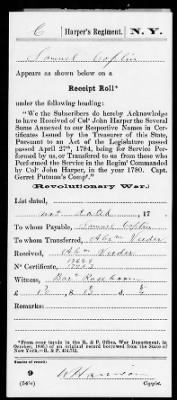 C | Harper's Regiment. | N. Y.
Samuel Coplin
Appears as shown below on a
Receipt Roll*
under the following heading:
"We the Subscribers do hereby Acknowledge
to have Received of Colº John Harper the Several
Sums Annexed to our Respective Names in Cer-
tificates Issued by the Treasurer of this State,
Pursuant to an Act of the Legislature passed
passed April 27th, 1784, being for Service Per-
formed by us, or Transfered to us from those who
Performed the Service in the Regimt Commanded
by Colº John Harper, in the year 1780. Capt.
Gerret Putman's Compy."
(Revolutionary War.)
List dated,
not dated, 17
To whom Payable, Samuel Coplin
To whom Transferred, Abrm Veeder
Received, Abm Veeder
Nº Certificate,
Witness,
£
Remarks:
Number of roll:
9
W Harrison
Copyist.